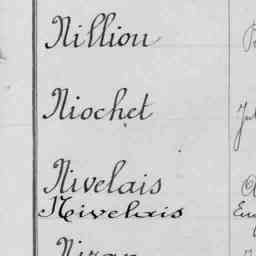 Nillion
Niochet
Nivelais
Nivelais